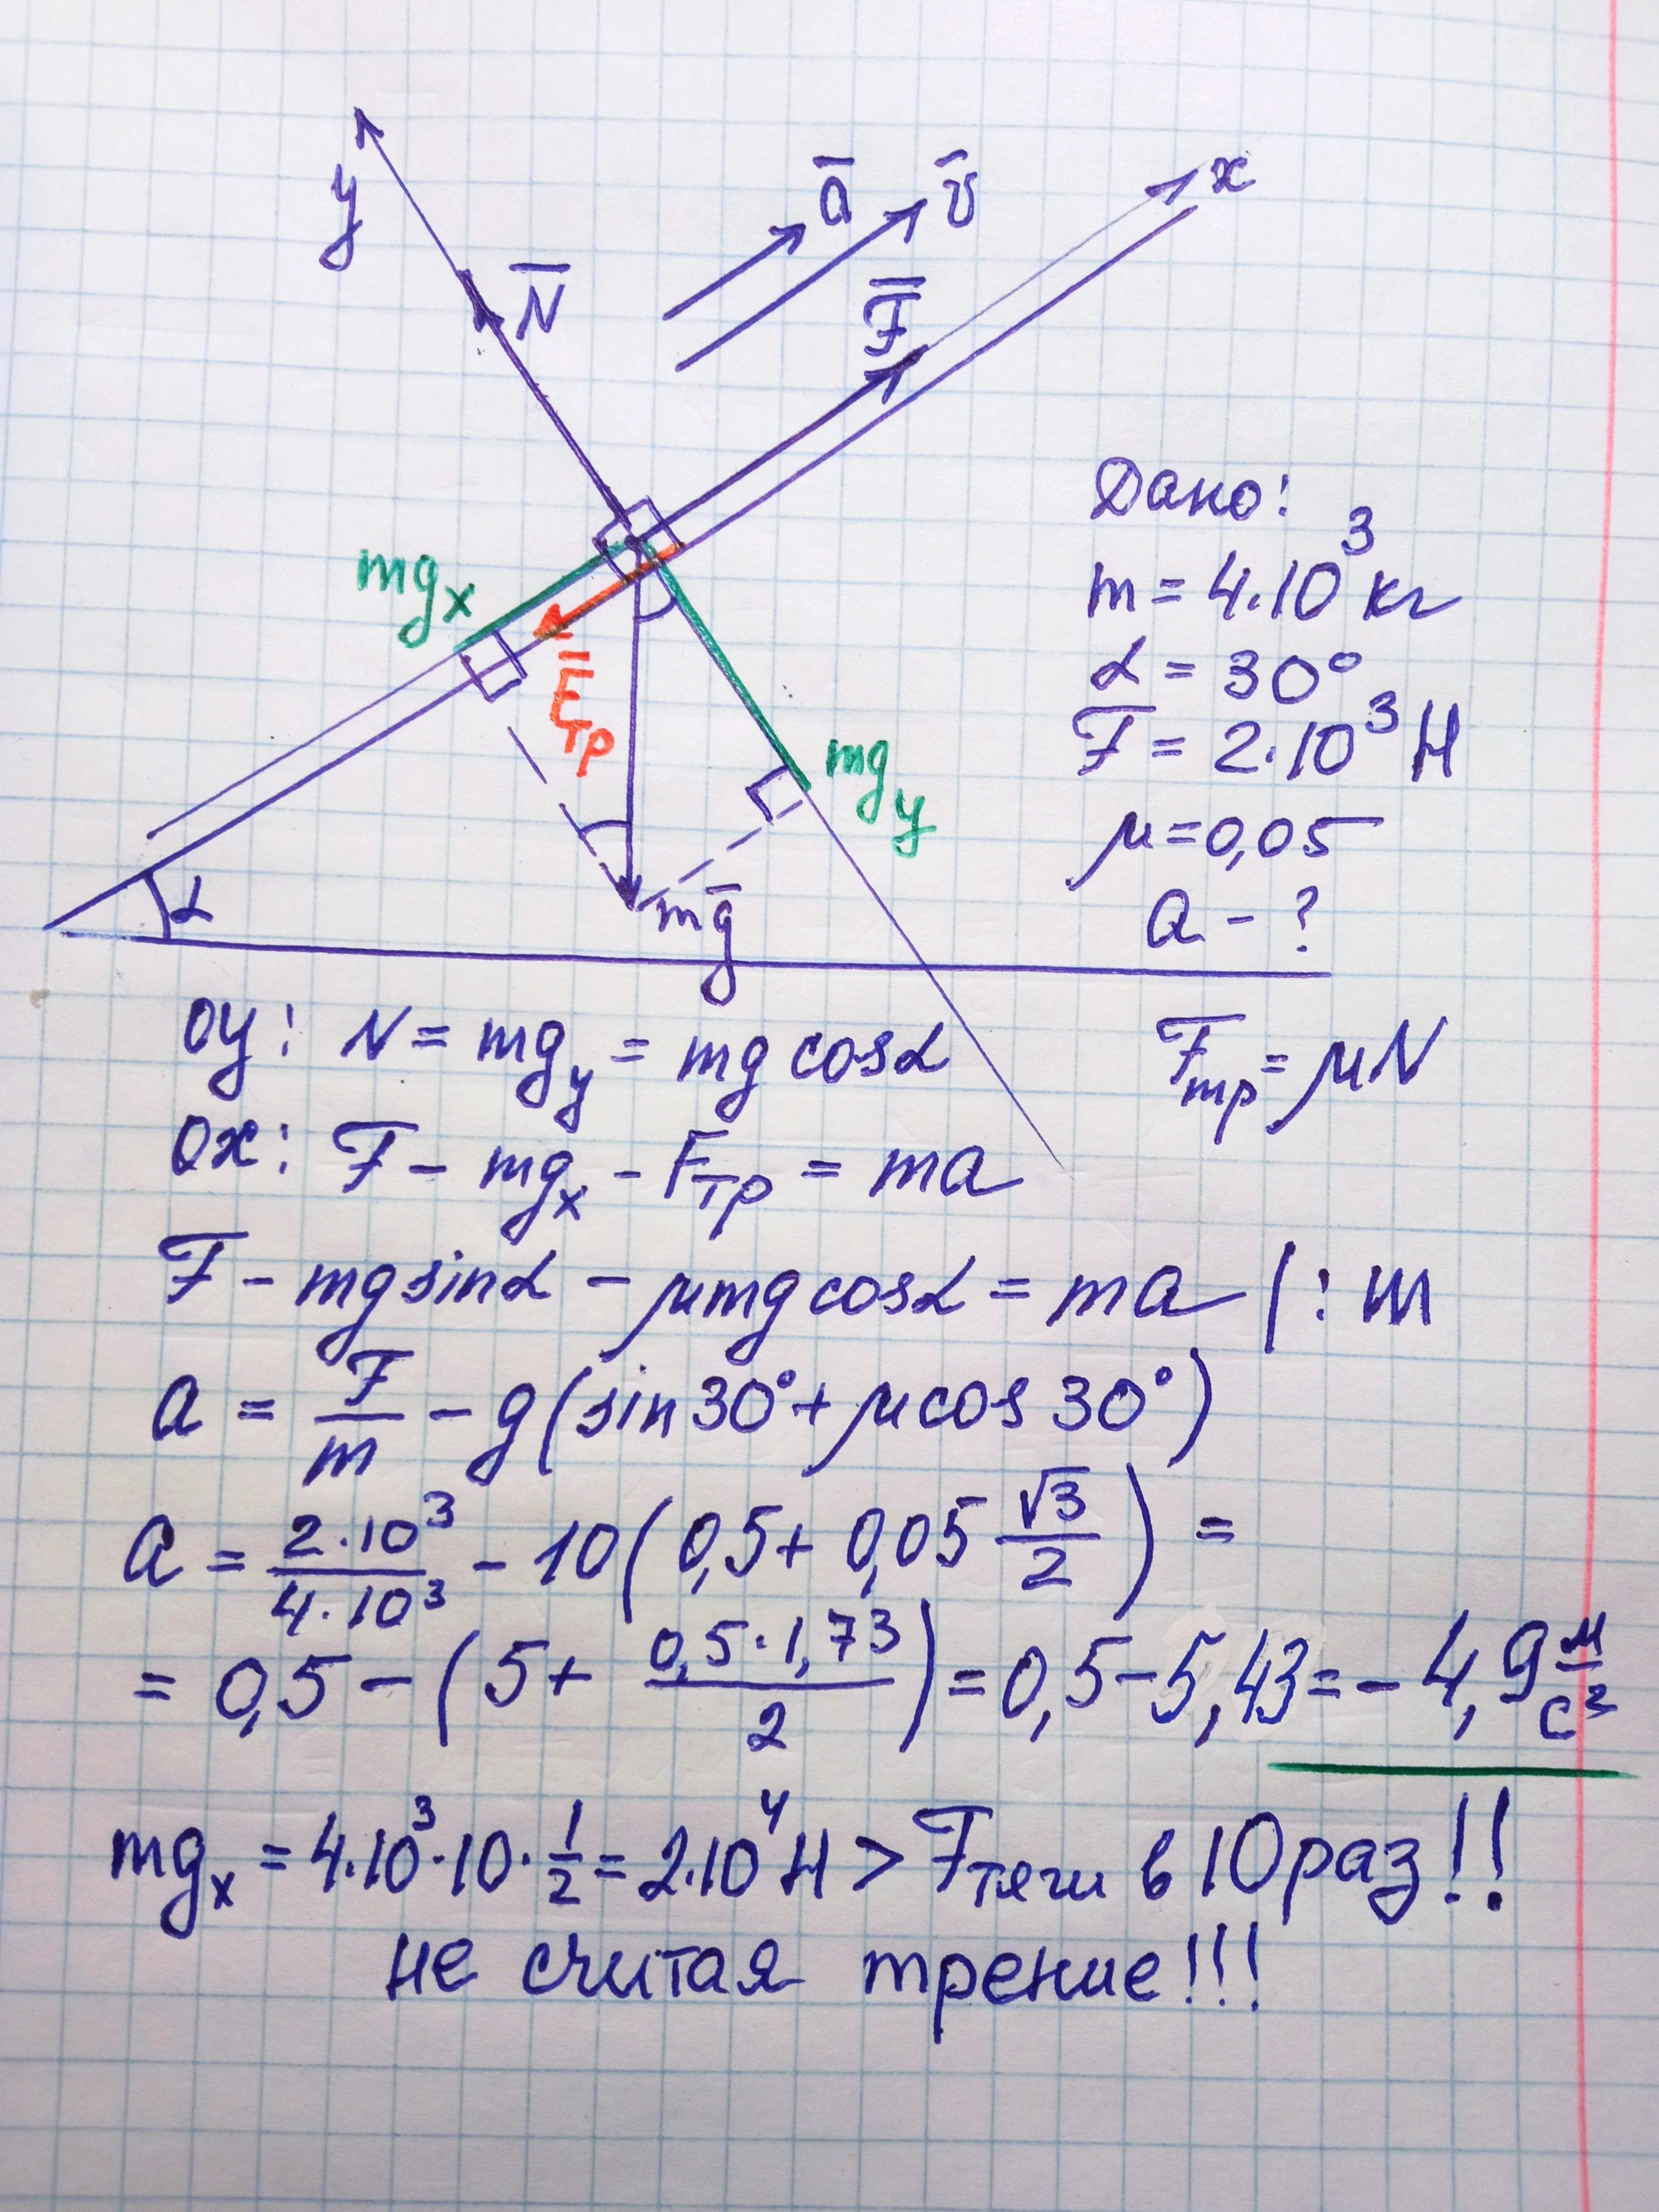 y
N̄
ā
v̄
F̄
x
mgₓ
F̄тр
mg_y
mḡ
α
Дано:
m = 4·10³ кг
α = 30°
F = 2·10³ Н
μ = 0,05
a - ?
OY: N = mg_y = mg cosα
Fтр = μN
OX: F - mgₓ - Fтр = ma
F - mg sinα - μmg cosα = ma |: m
a = F/m - g(sin30° + μcos30°)
a = 2·10³/4·10³ - 10(0,5 + 0,05 √3/2) =
= 0,5 - (5 + 0,5·1,73/2) = 0,5 - 5,43 = - 4,9 м/с²
mgₓ = 4·10³·10·1/2 = 2·10⁴ Н > Fтяги в 10 раз!!
не считая трение!!!